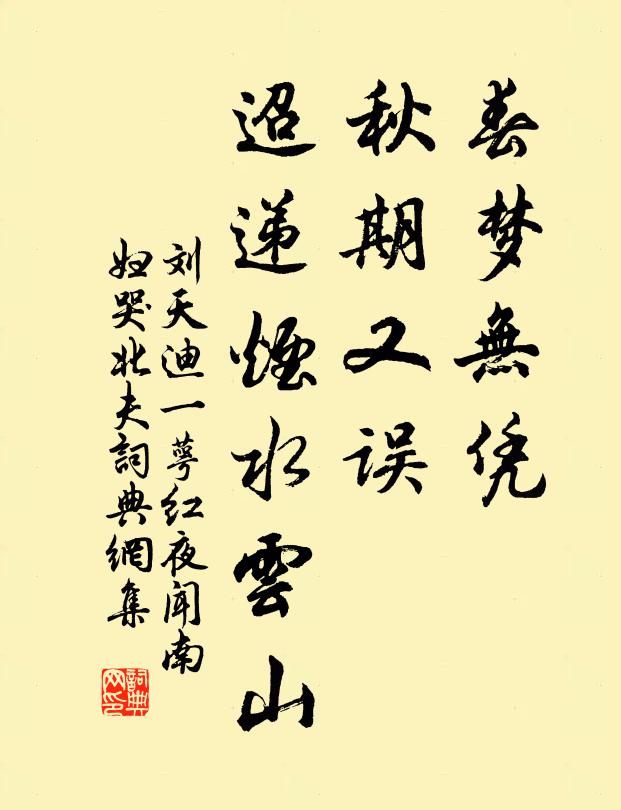 春梦無凭
秋期又误
迢递煙水雲山
刘天迪一萼红夜闻南
妇哭北夫詞典網集
詞典
网印